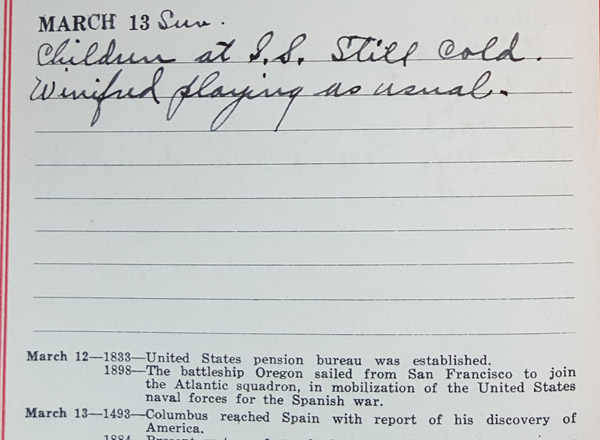 MARCH 13 Sun.
Children at S.S. Still cold.
Winifred playing as usual.
March 12—1833—United States pension bureau was established.
1898—The battleship Oregon sailed from San Francisco to join
the Atlantic squadron, in mobilization of the United States
naval forces for the Spanish war.
March 13—1493—Columbus reached Spain with report of his discovery of
America.
1884